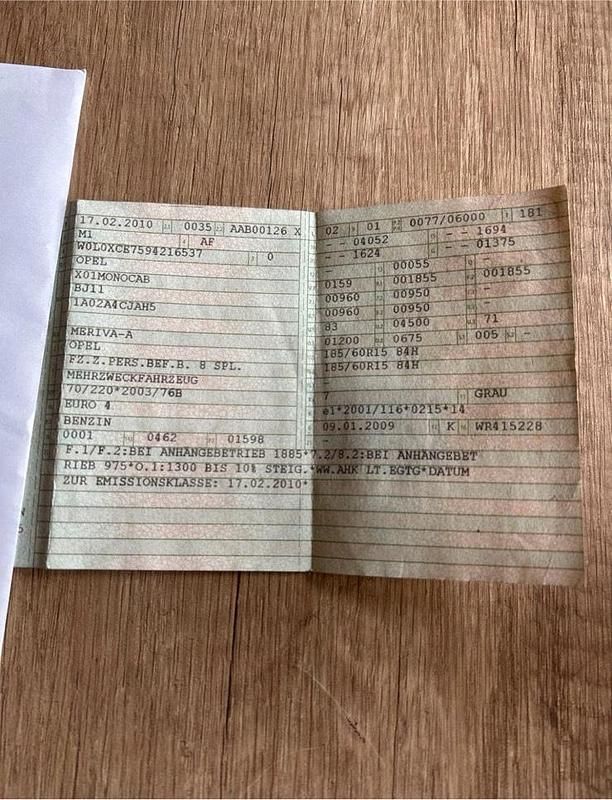 17.02.2010 0035 AAB00126 X
M1 AF
W0L0XCE7594216537 0
OPEL
X01MONOCAB
BJ11
1A02A4CJAH5
MERIVA-A
OPEL
FZ.Z.PERS.BEF.B. 8 SPL.
MEHRZWECKFAHRZEUG
70/220*2003/76B
EURO 4
BENZIN
0001 0462 01598
02 01 0077/06000 181
- - 04052 - - 1694
- - 1624 - - 01375
00055 -
0159 001855 001855
00960 00950 -
00960 00950 -
83 04500 71
01200 0675 005 -
185/60R15 84H
185/60R15 84H
-
7 GRAU
e1*2001/116*0215*14
09.01.2009 K WR415228
-
F.1/F.2:BEI ANHÄNGEBETRIEB 1885*7.2/8.2:BEI ANHÄNGEBET
RIEB 975*O.1:1300 BIS 10% STEIG.*WW.AHK LT.EGTG*DATUM
ZUR EMISSIONSKLASSE: 17.02.2010*